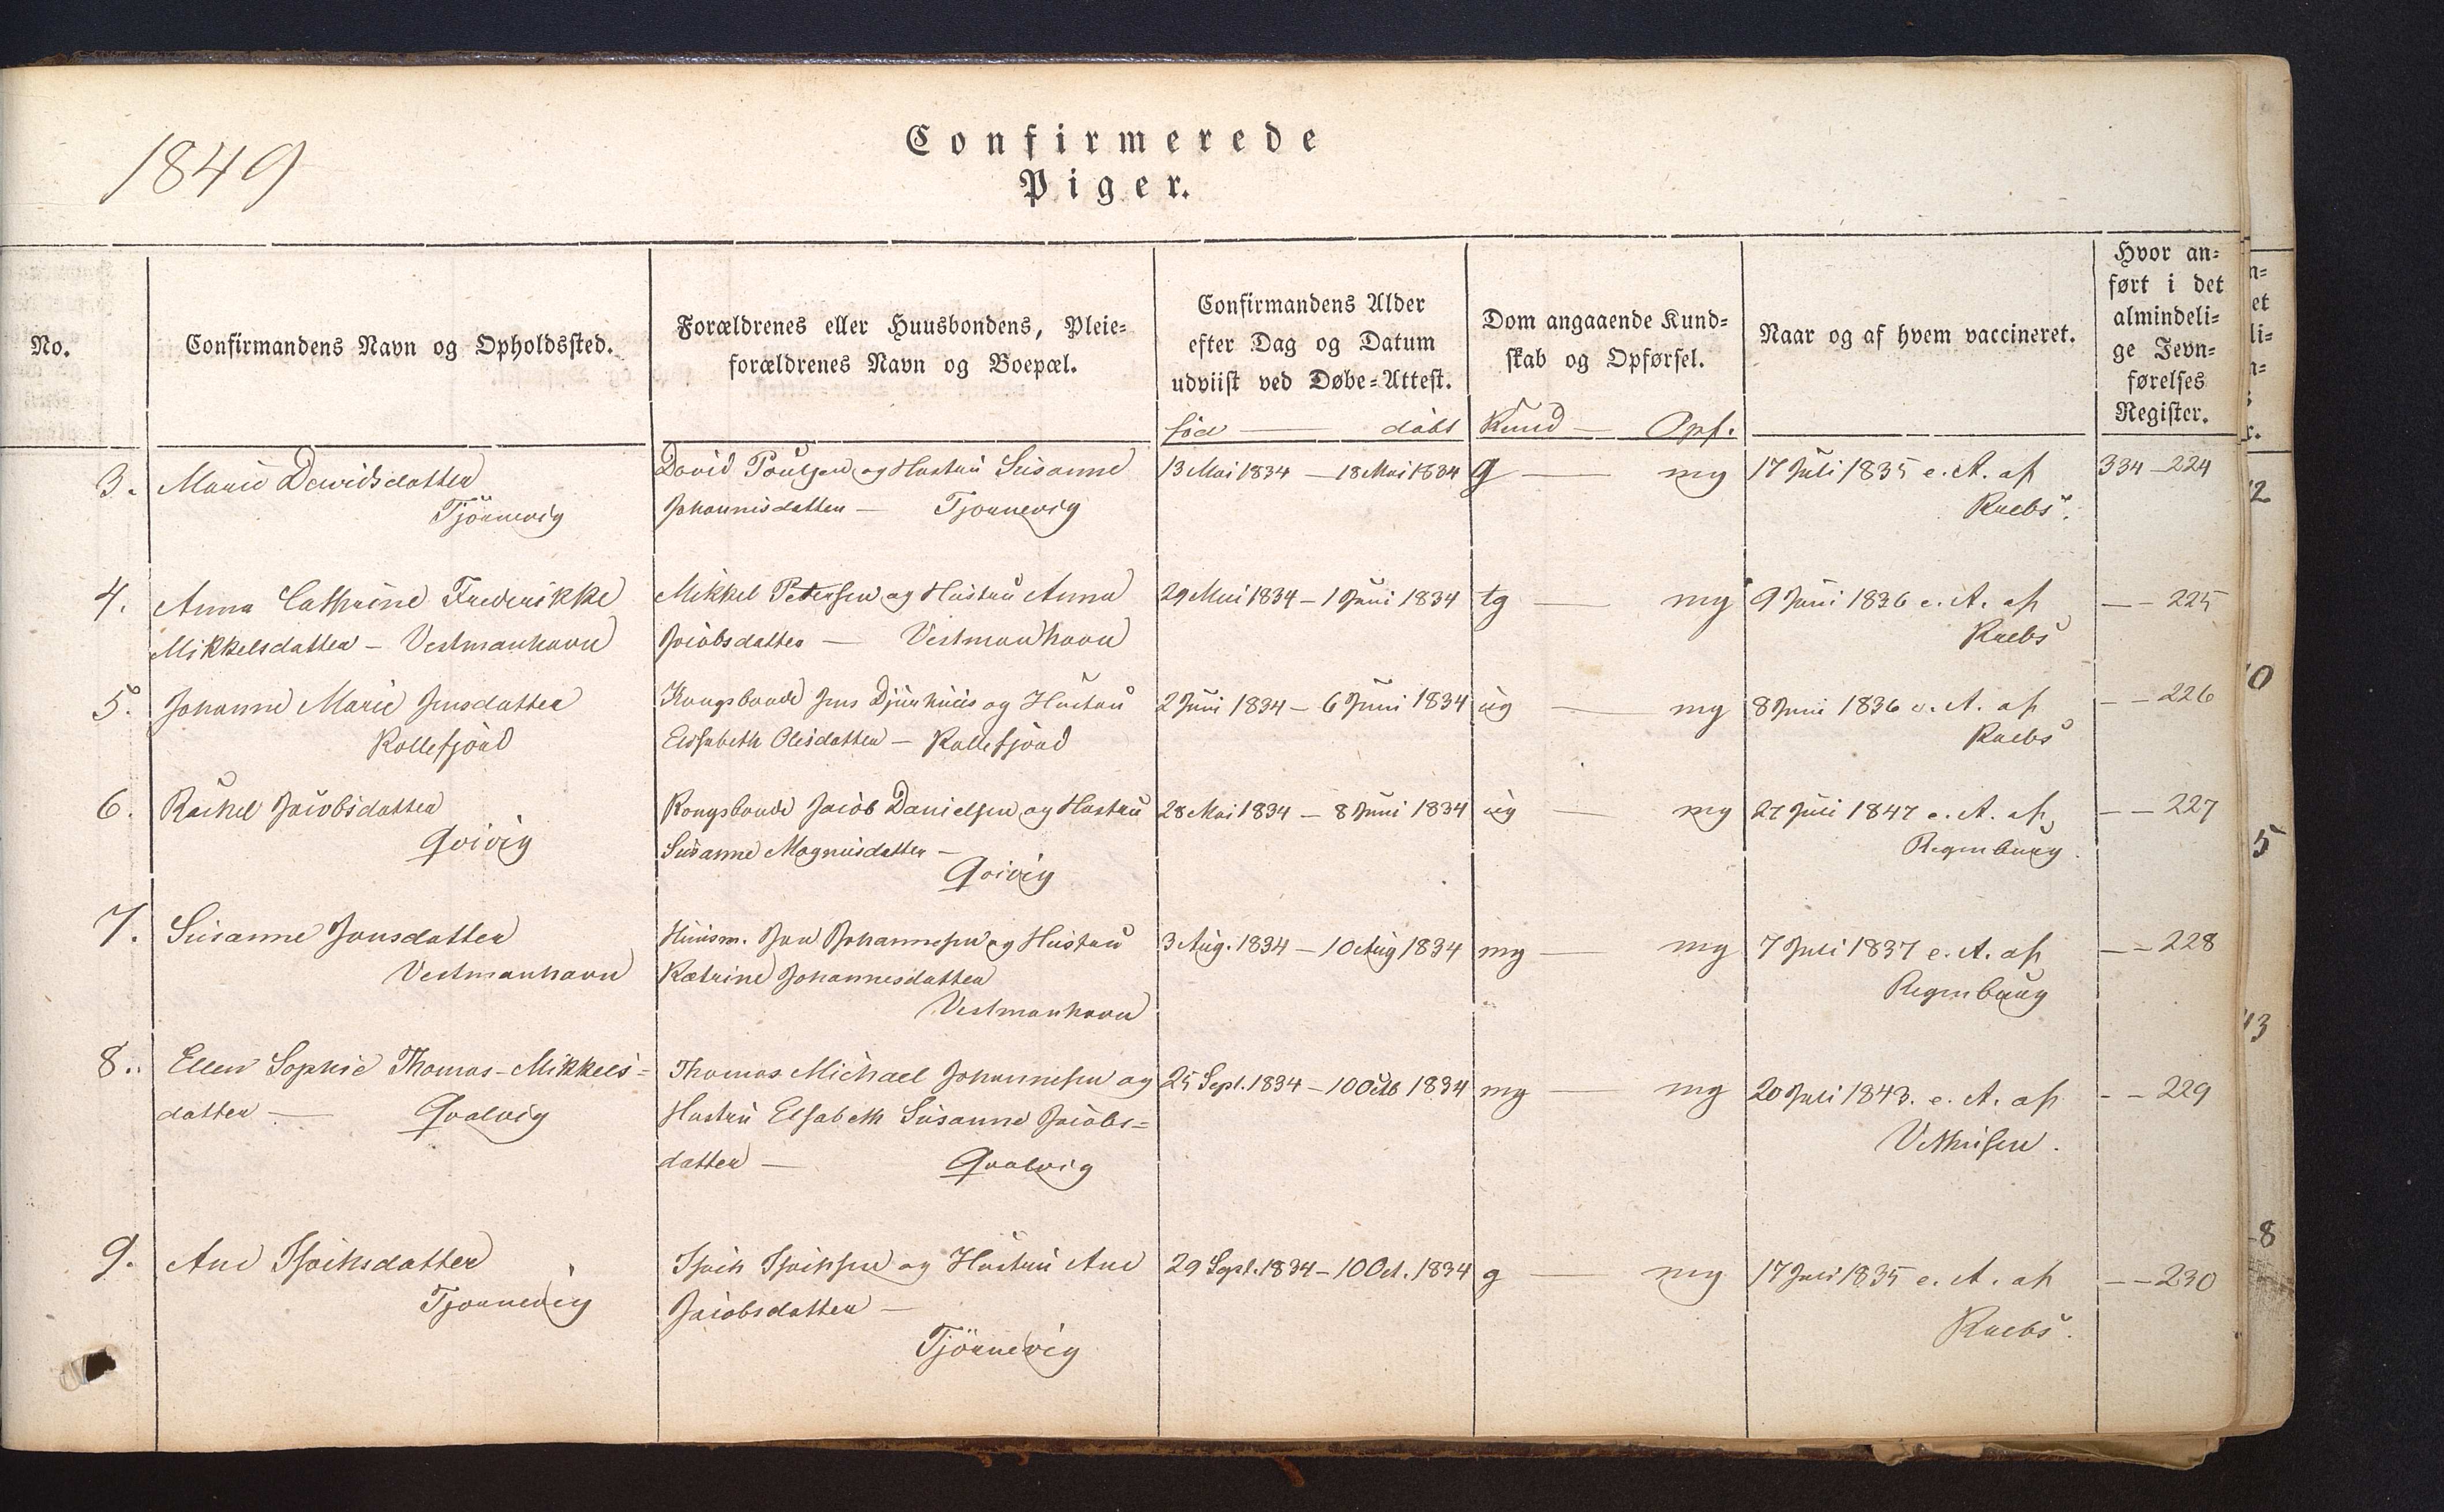 1849
Confirmerede
Piger.
No.
Confirmandens Navn og Opholdssted.
Forældrenes eller Huusbondens, Pleie-
forældrenes Navn og Boepæl.
Confirmandens Alder
efter Dag og Datum
udviist ved Døbe-Attest.
Dom angaaende Kund-
skab og Opførsel.
Naar og af hvem vaccineret.
Hvor an-
ført i det
almindeli-
ge Jevn-
førelses
Register.
fød — døbt
Kund — Opf.
3. Marie Davidsdatter
Tjörnevig
David Poulsen og Hustru Susanne
Johannisdatter — Tjörnevig
13 Mai 1834 — 18 Mai 1834
g — mg
17 Juli 1835 e. A. af
Raebs.
334 - 224
4. Anna Cathrine Frederikke
Mikkelsdatter - Vestmanhavn
Mikkel Petersen og Hustru Anna
Jacobsdatter — Vestmanhavn
29 Mai 1834 - 1 Juni 1834
tg — mg
9 Juni 1836 e. A. af
Raebs
— - 225
5. Johanne Marie Jensdatter
Kollefjord
Kongsbonde Jens Djurhuus og Hustru
Elisabeth Olesdatter - Kollefjord
2 Juni 1834 - 6 Juni 1834
ug — mg
8 Juni 1836 e. A. af
Raebs
- - 226
6. Rachel Jacobsdatter
Qvivig
Kongsbonde Jacob Danielsen og Hustru
Susanne Magnusdatter -
Qvivig
28 Mai 1834 - 8 Juni 1834
ug — mg
27 Juli 1847 e. A. af
Regenburg.
— - 227
7. Susanne Jonsdatter
Vestmanhavn
Huusm. Jon Johannesen og Hustru
Katrine Johannesdatter
Vestmanhavn
3 Aug. 1834 - 10 Aug 1834
mg — mg
7 Juli 1837 e. A. af
Regenburg
— - 228
8. Ellen Sophie Thomas-Mikkels-
datter — Qvalvig
Thomas Michael Johannesen og
Hustru Elsabeth Susanne Jacobs-
datter — Qvalvig
25 Sept. 1834 - 10 Octb 1834
mg — mg
20 Juli 1843. e. A. af
- - 229
9. Ane Isaksdatter
Tjörnevig
Isach Isaksen og Hustru Ane
Jacobsdatter —
Tjörnevig
29 Sept. 1834 - 10 Oct. 1834
g — mg
17 Juli 1835 e. A. af
Raebs.
— - 230